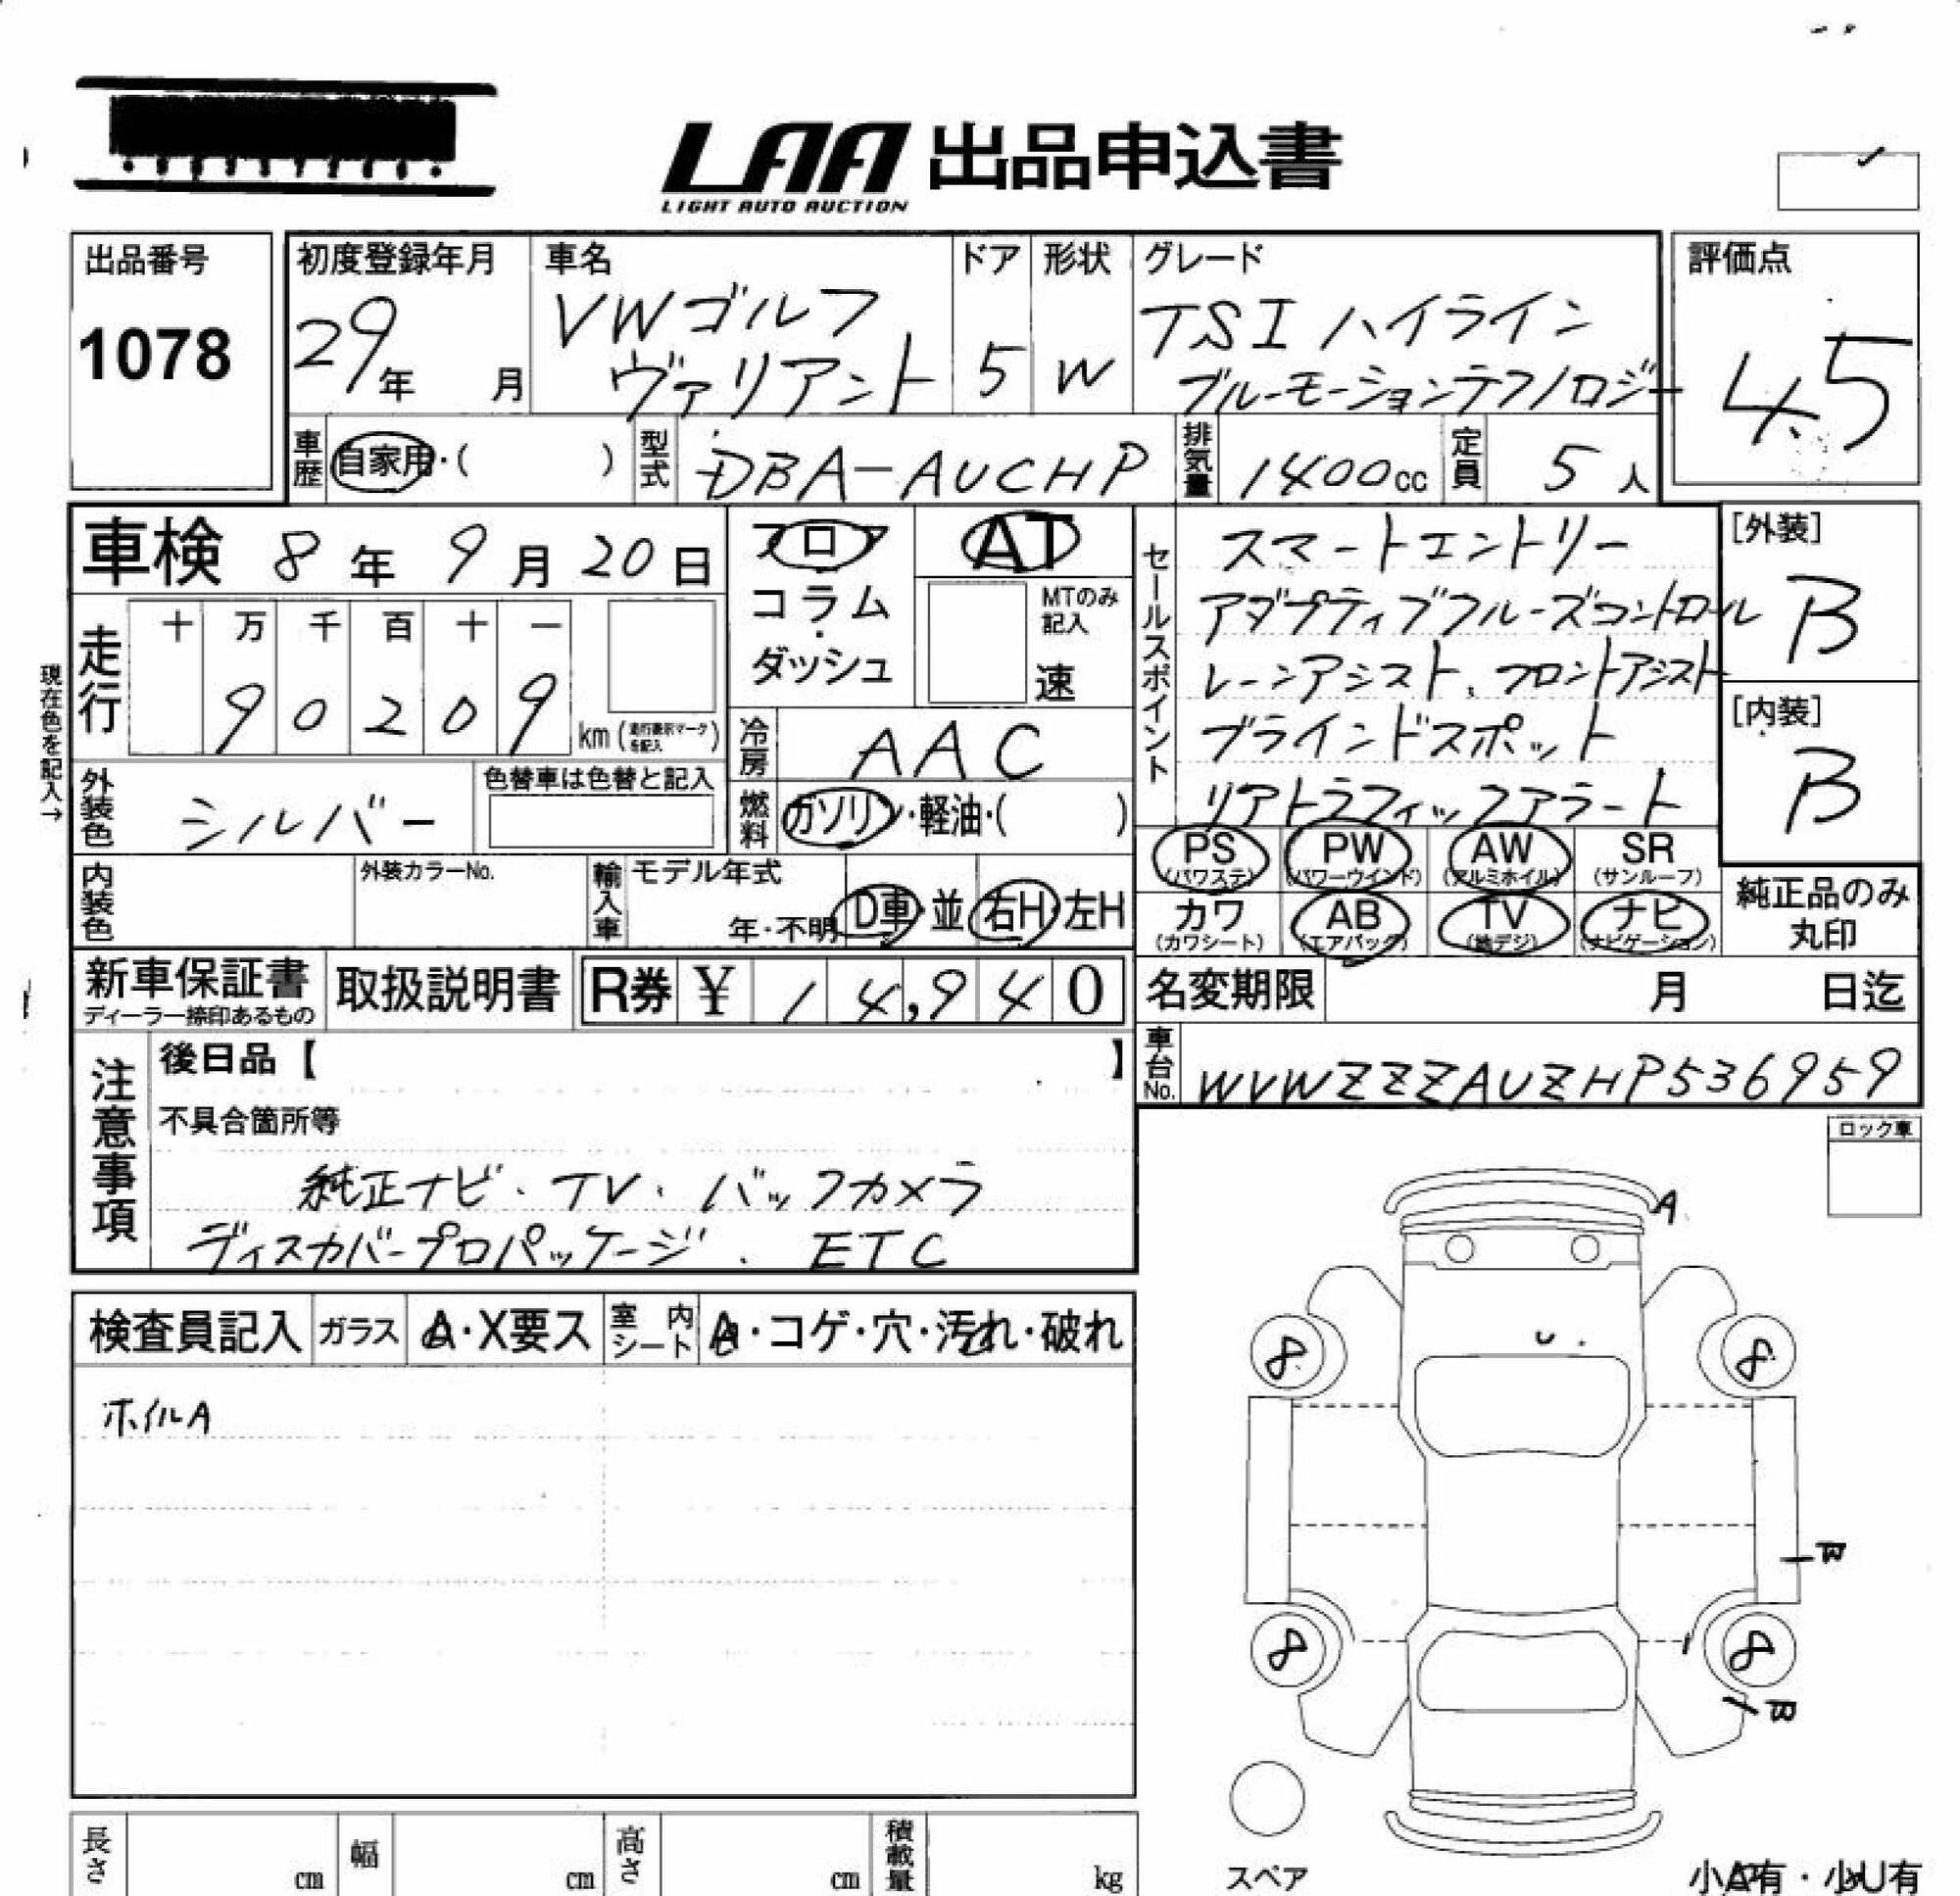 LAA 出品申込書
LIGHT AUTO AUCTION
出品番号
1078
初度登録年月
29年 月
車名
VWゴルフ
ヴァリアント
ドア
5
形状
W
グレード
TSI ハイライン
ブルーモーションテクノロジー
評価点
4.5
車歴 自家用・( )
型式 DBA-AUCHP
排気量 1400cc
定員 5人
車検 8年 9月 20日
フロア
コラム
・
ダッシュ
AT
MTのみ
記入
速
セールスポイント
スマートエントリー
アダプティブクルーズコントロール
レーンアシスト、フロントアシスト
ブラインドスポット
リアトラフィックアラート
[外装]
B
[内装]
B
現在色を記入→
走行
十 万 千 百 十 一
9 0 2 0 9
km (走行表示マークを記入)
冷房 AAC
外装色 シルバー
色替車は色替と記入
燃料 ガソリン・軽油・( )
内装色
外装カラーNo.
輸入車
モデル年式
年・不明
D車・並
右H・左H
PS
(パワステ)
PW
(パワーウインド)
AW
(アルミホイル)
SR
(サンルーフ)
カワ
(カワシート)
AB
(エアバッグ)
TV
(地デジ)
ナビ
(ナビゲーション)
純正品のみ
丸印
新車保証書
ディーラー捺印あるもの
取扱説明書
R券 ¥ 14,940
名変期限 月 日迄
車台No. WVWZZZAUZHP536959
注意事項
後日品【 】
不具合箇所等
純正ナビ、TV、バックカメラ
ディスカバープロパッケージ、ETC
ロック車
検査員記入
ガラス
A・X要ス
室内
シート
・コゲ・穴・汚れ・破れ
ホイルA
A
U
8
8
W
8
8
B
スペア
小A有・小U有
長さ cm
幅 cm
高さ cm
積載量 kg